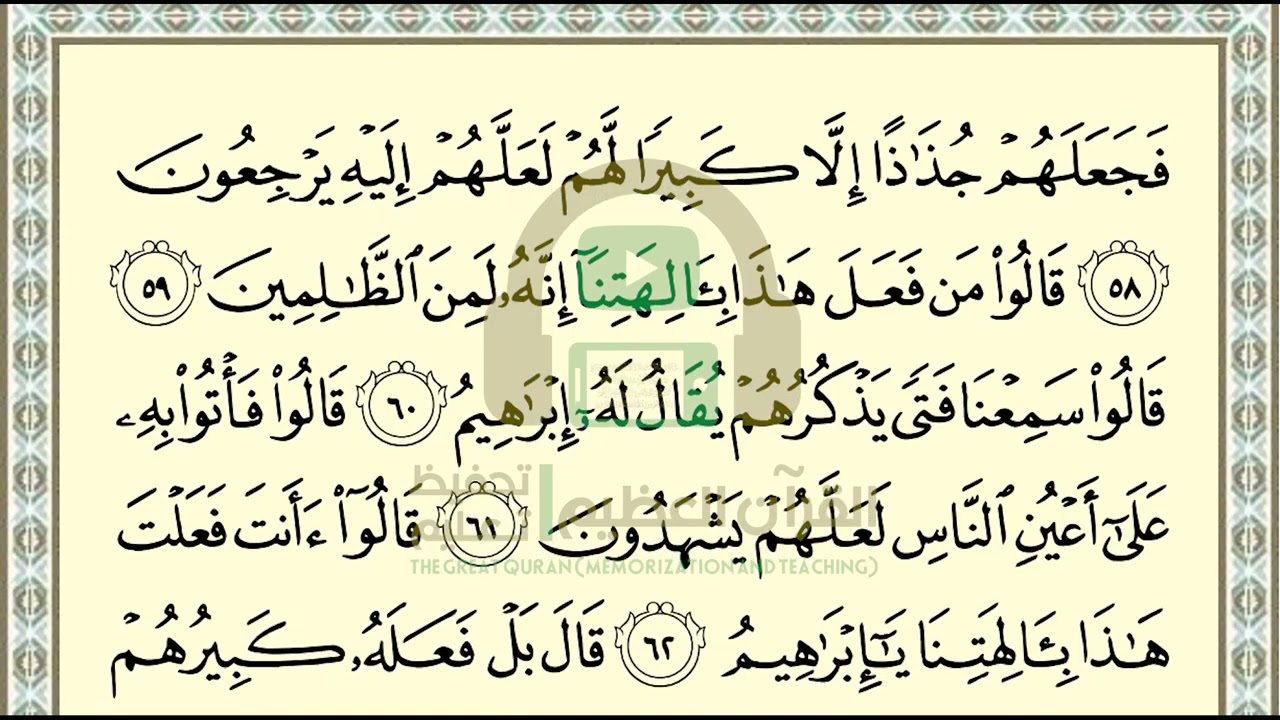 فَجَعَلَهُمۡ جُذَٰذًا إِلَّا كَبِيرٗا لَّهُمۡ لَعَلَّهُمۡ إِلَيۡهِ يَرۡجِعُونَ
٥٨ قَالُواْ مَن فَعَلَ هَٰذَا بِـَٔالِهَتِنَآ إِنَّهُۥ لَمِنَ ٱلظَّٰلِمِينَ ٥٩
قَالُواْ سَمِعۡنَا فَتٗى يَذۡكُرُهُمۡ يُقَالُ لَهُۥٓ إِبۡرَٰهِيمُ ٦٠ قَالُواْ فَأۡتُواْ بِهِۦ
القرآن العظيم تحفيظ تعليم
عَلَىٰٓ أَعۡيُنِ ٱلنَّاسِ لَعَلَّهُمۡ يَشۡهَدُونَ ٦١ قَالُوٓاْ ءَأَنتَ فَعَلۡتَ
THE GREAT QURAN (MEMORIZATION AND TEACHING)
هَٰذَا بِـَٔالِهَتِنَا يَٰٓإِبۡرَٰهِيمُ ٦٢ قَالَ بَلۡ فَعَلَهُۥ كَبِيرُهُمۡ